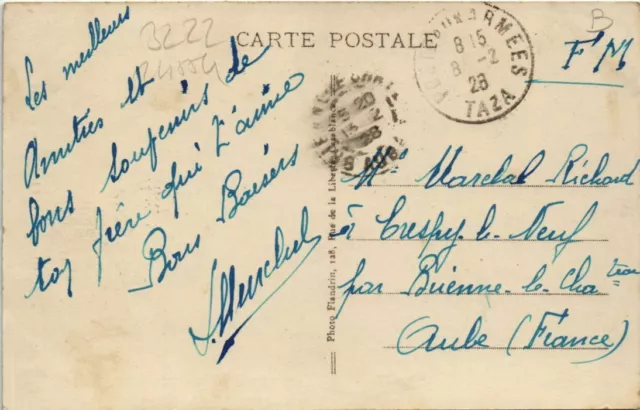 CARTE POSTALE
3222
B
F M
POSTE AUX ARMEES
8 15
8 - 2
28
TAZA
20
Les meilleurs
Amitiés et
bons souvenirs de
ton frère qui t'aime
Bons Baisers
Mr Marchal Richard
à Crespy-le-Neuf
par Brienne-le-Cha
teau
Aube (France)
Photo Flandrin, 128, Rue de la Liberté, Casablanca